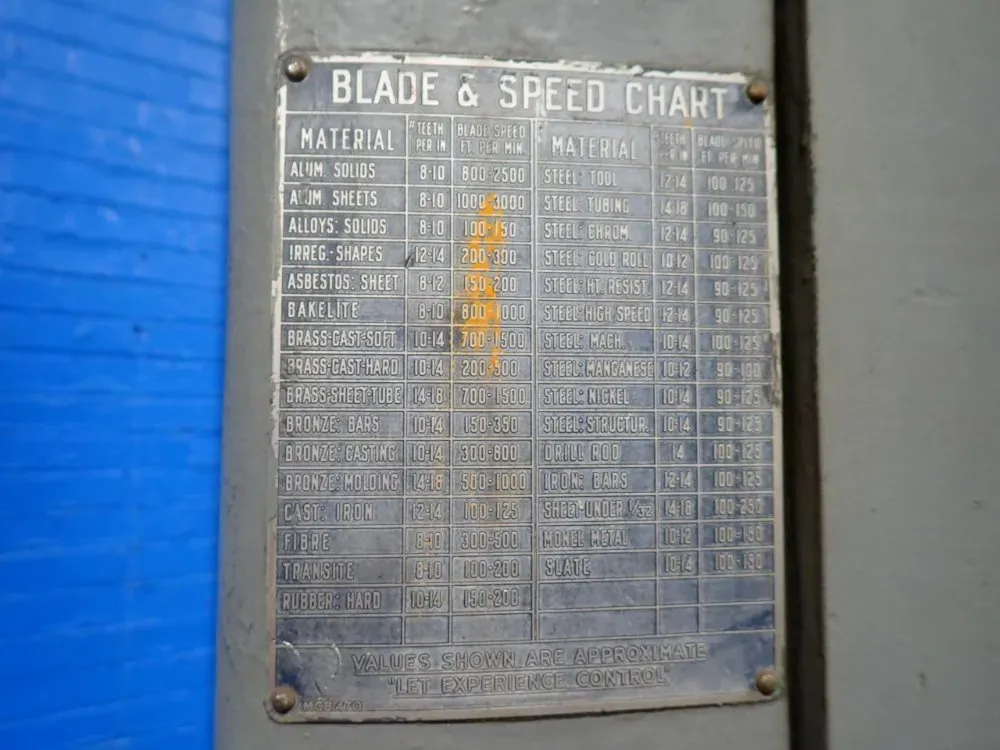 BLADE & SPEED CHART
MATERIAL TEETH PER IN. BLADE SPEED FT. PER MIN. MATERIAL TEETH PER IN. BLADE SPEED FT. PER MIN.
ALUM. SOLIDS 8-10 800-2500 STEEL: TOOL 12-14 100-125
ALUM SHEETS 8-10 1000-3000 STEEL: TUBING 14-18 100-150
ALLOYS: SOLIDS 8-10 100-150 STEEL: CHROM. 12-14 90-125
IRREG.-SHAPES 12-14 200-300 STEEL: COLD ROLL 10-12 100-125
ASBESTOS: SHEET 8-12 150-200 STEEL: HT. RESIST. 12-14 90-125
BAKELITE 8-10 800-1000 STEEL: HIGH SPEED 12-14 90-125
BRASS-CAST-SOFT 10-14 700-1500 STEEL: MACH. 10-14 100-125
BRASS-CAST-HARD 10-14 200-500 STEEL: MANGANESE 10-12 90-100
BRASS-SHEET-TUBE 14-18 700-1500 STEEL: NICKEL 10-14 90-125
BRONZE: BARS 10-14 150-350 STEEL: STRUCTUR. 10-14 90-125
BRONZE: CASTING 10-14 300-800 DRILL ROD 14 100-125
BRONZE: MOLDING 14-18 500-1000 IRON: BARS 12-14 100-125
CAST: IRON 12-14 100-125 SHEET-UNDER 1/32 14-18 100-250
FIBRE 8-10 300-500 MONEL METAL 10-12 100-150
TRANSITE 8-10 100-200 SLATE 10-14 100-150
RUBBER: HARD 10-14 150-200
VALUES SHOWN ARE APPROXIMATE
"LET EXPERIENCE CONTROL"